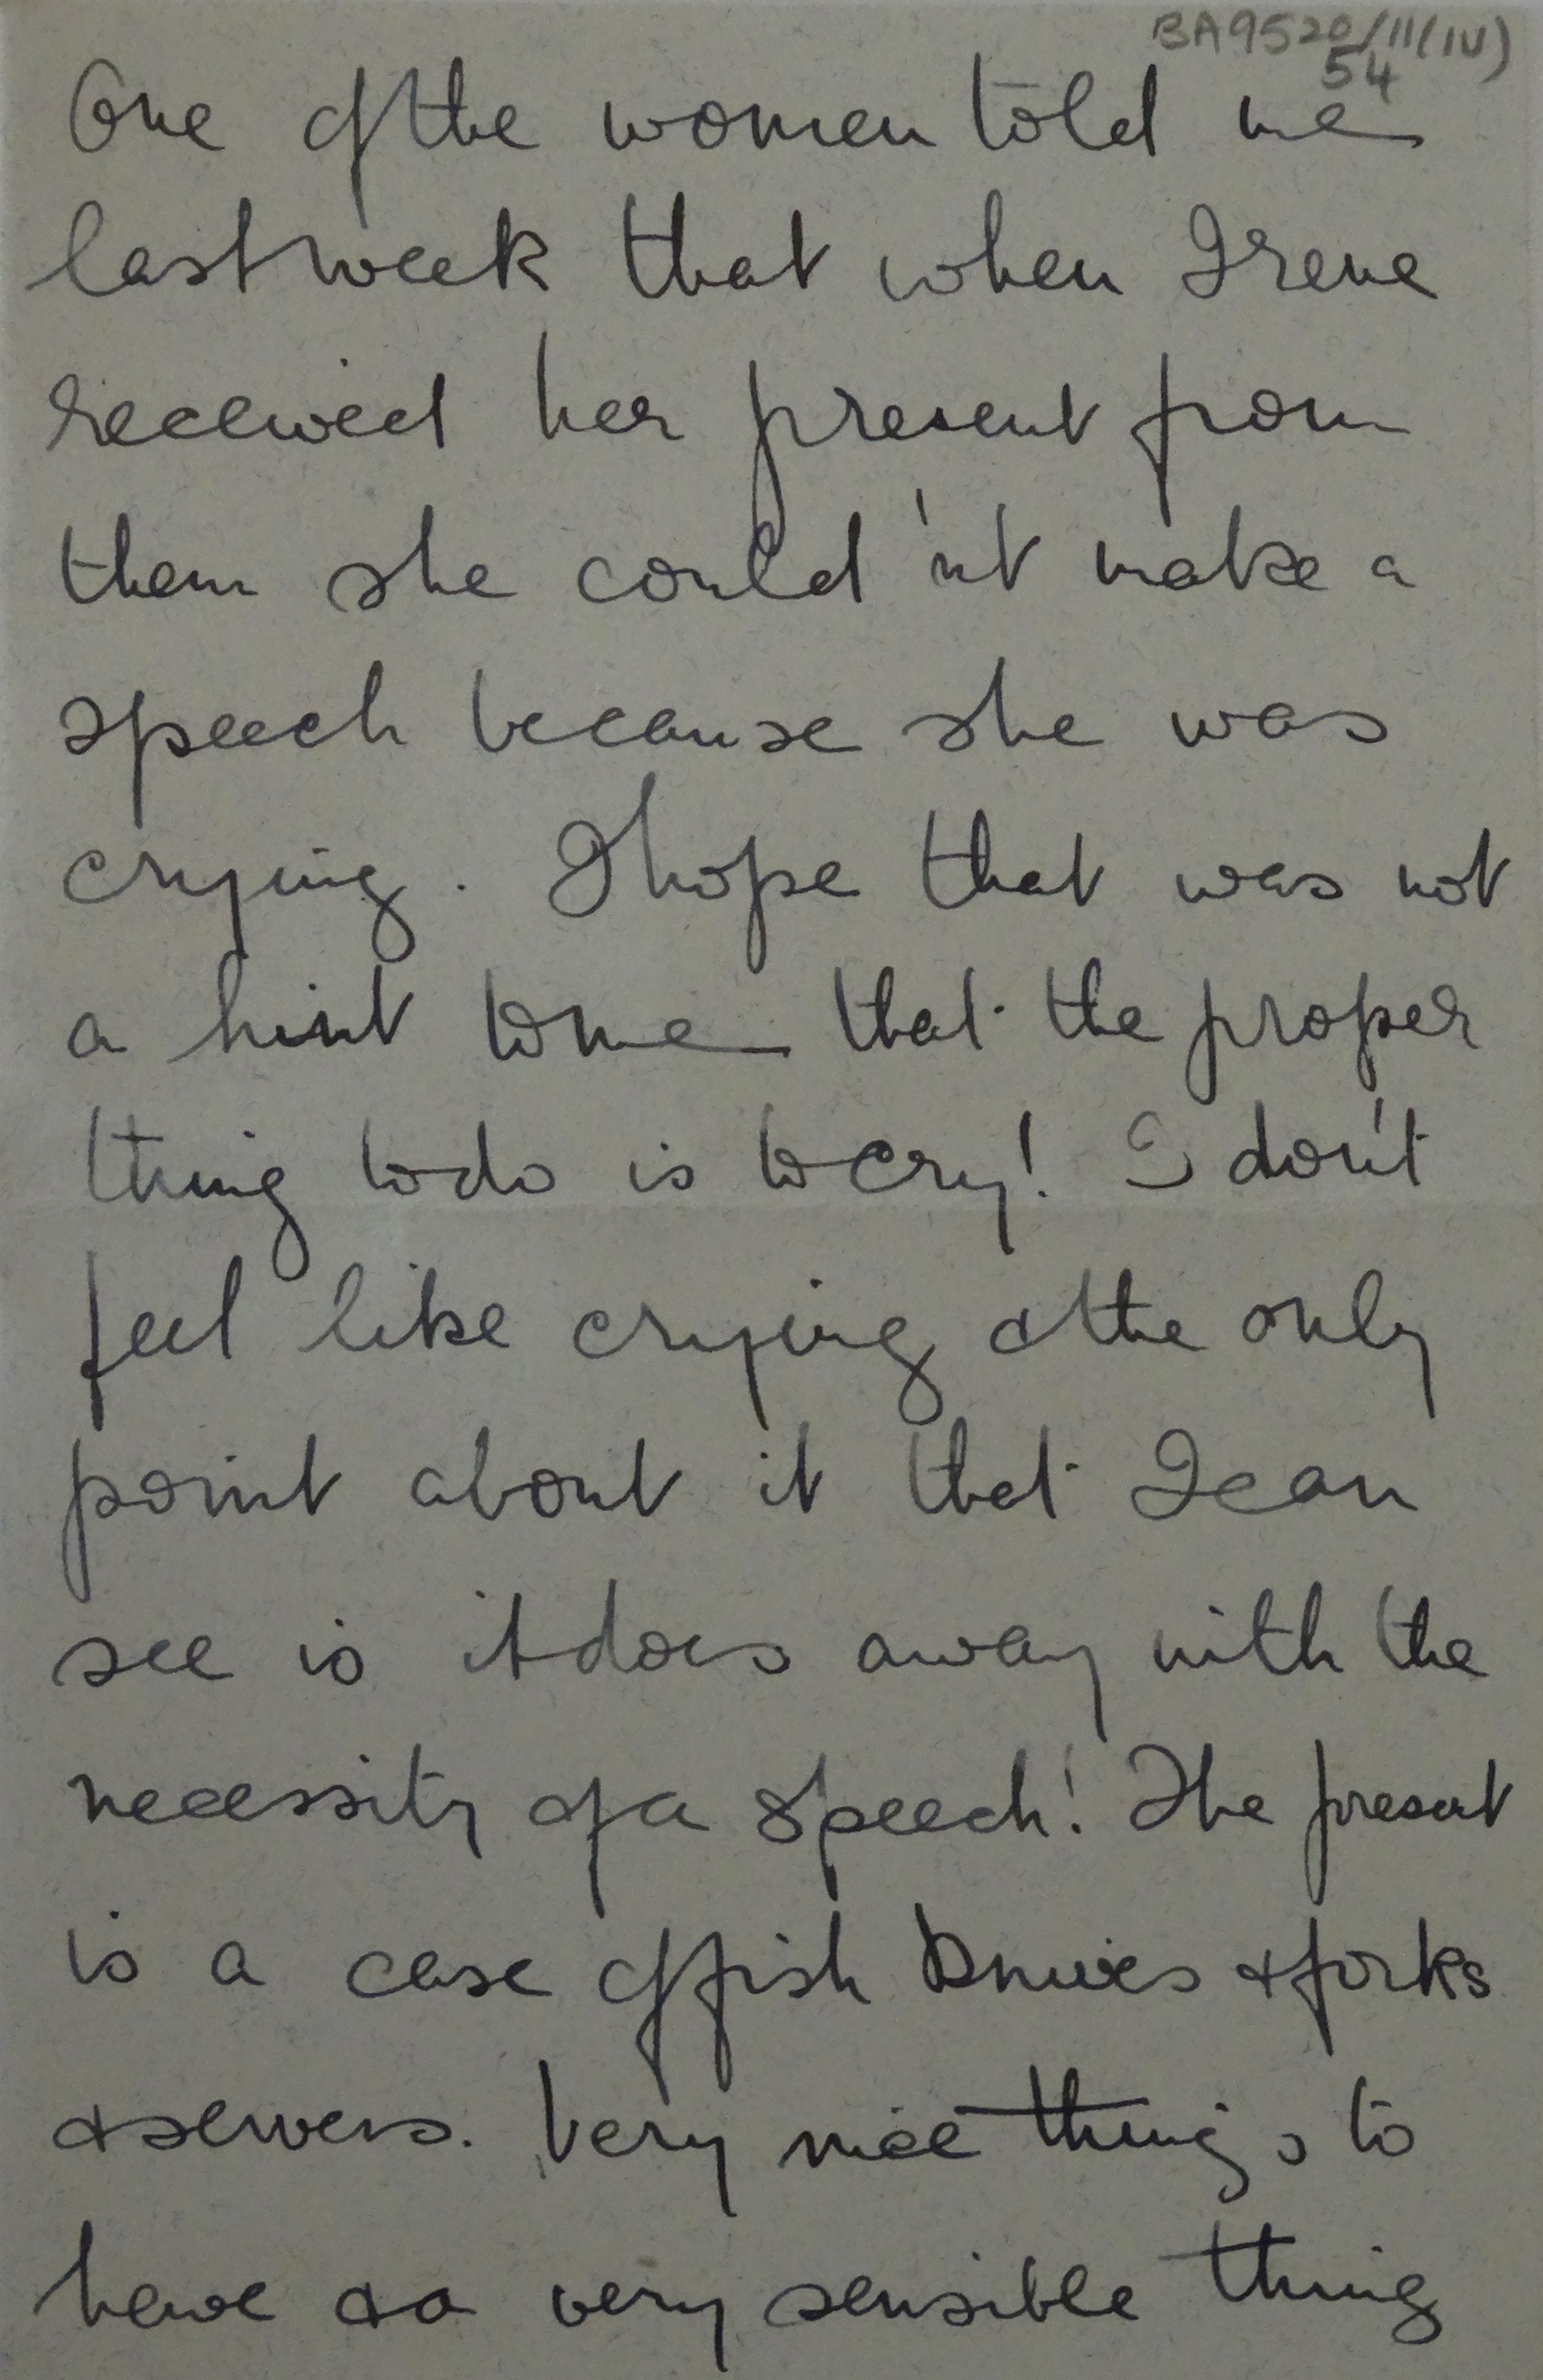 BA9520/11(IV)
54
One of the women told me
last week that when Irene
received her present from
them she could 'nt make a
speech because she was
crying. I hope that was not
a hint to me that the proper
thing to do is to cry! I don't
feel like crying & the only
point about it that I can
see is it does away with the
necessity of a speech! The present
is a case of fish knives & forks
& servers. Very nice things to
have & a very sensible thing